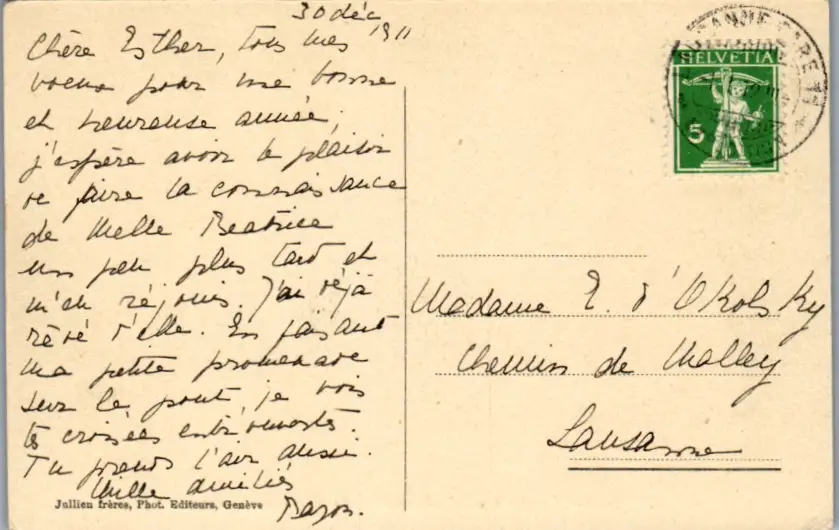 30 déc 1911
Chère Esther, tous mes
voeux pour une bonne
et heureuse année,
j'espère avoir le plaisir
de faire la connaissance
de Melle Beatrice
un peu plus tard et
m'en réjouis. J'ai déjà
rêvé d'elle. En faisant
ma petite promenade
sur le pont, je vois
tes croisées entr'ouvertes.
Tu prends l'air aussi.
Mille amitiés
Jullien frères, Phot. Editeurs, Genève
HELVETIA
5
Madame E. d'Okolsky
Chemin de Malley
Lausanne